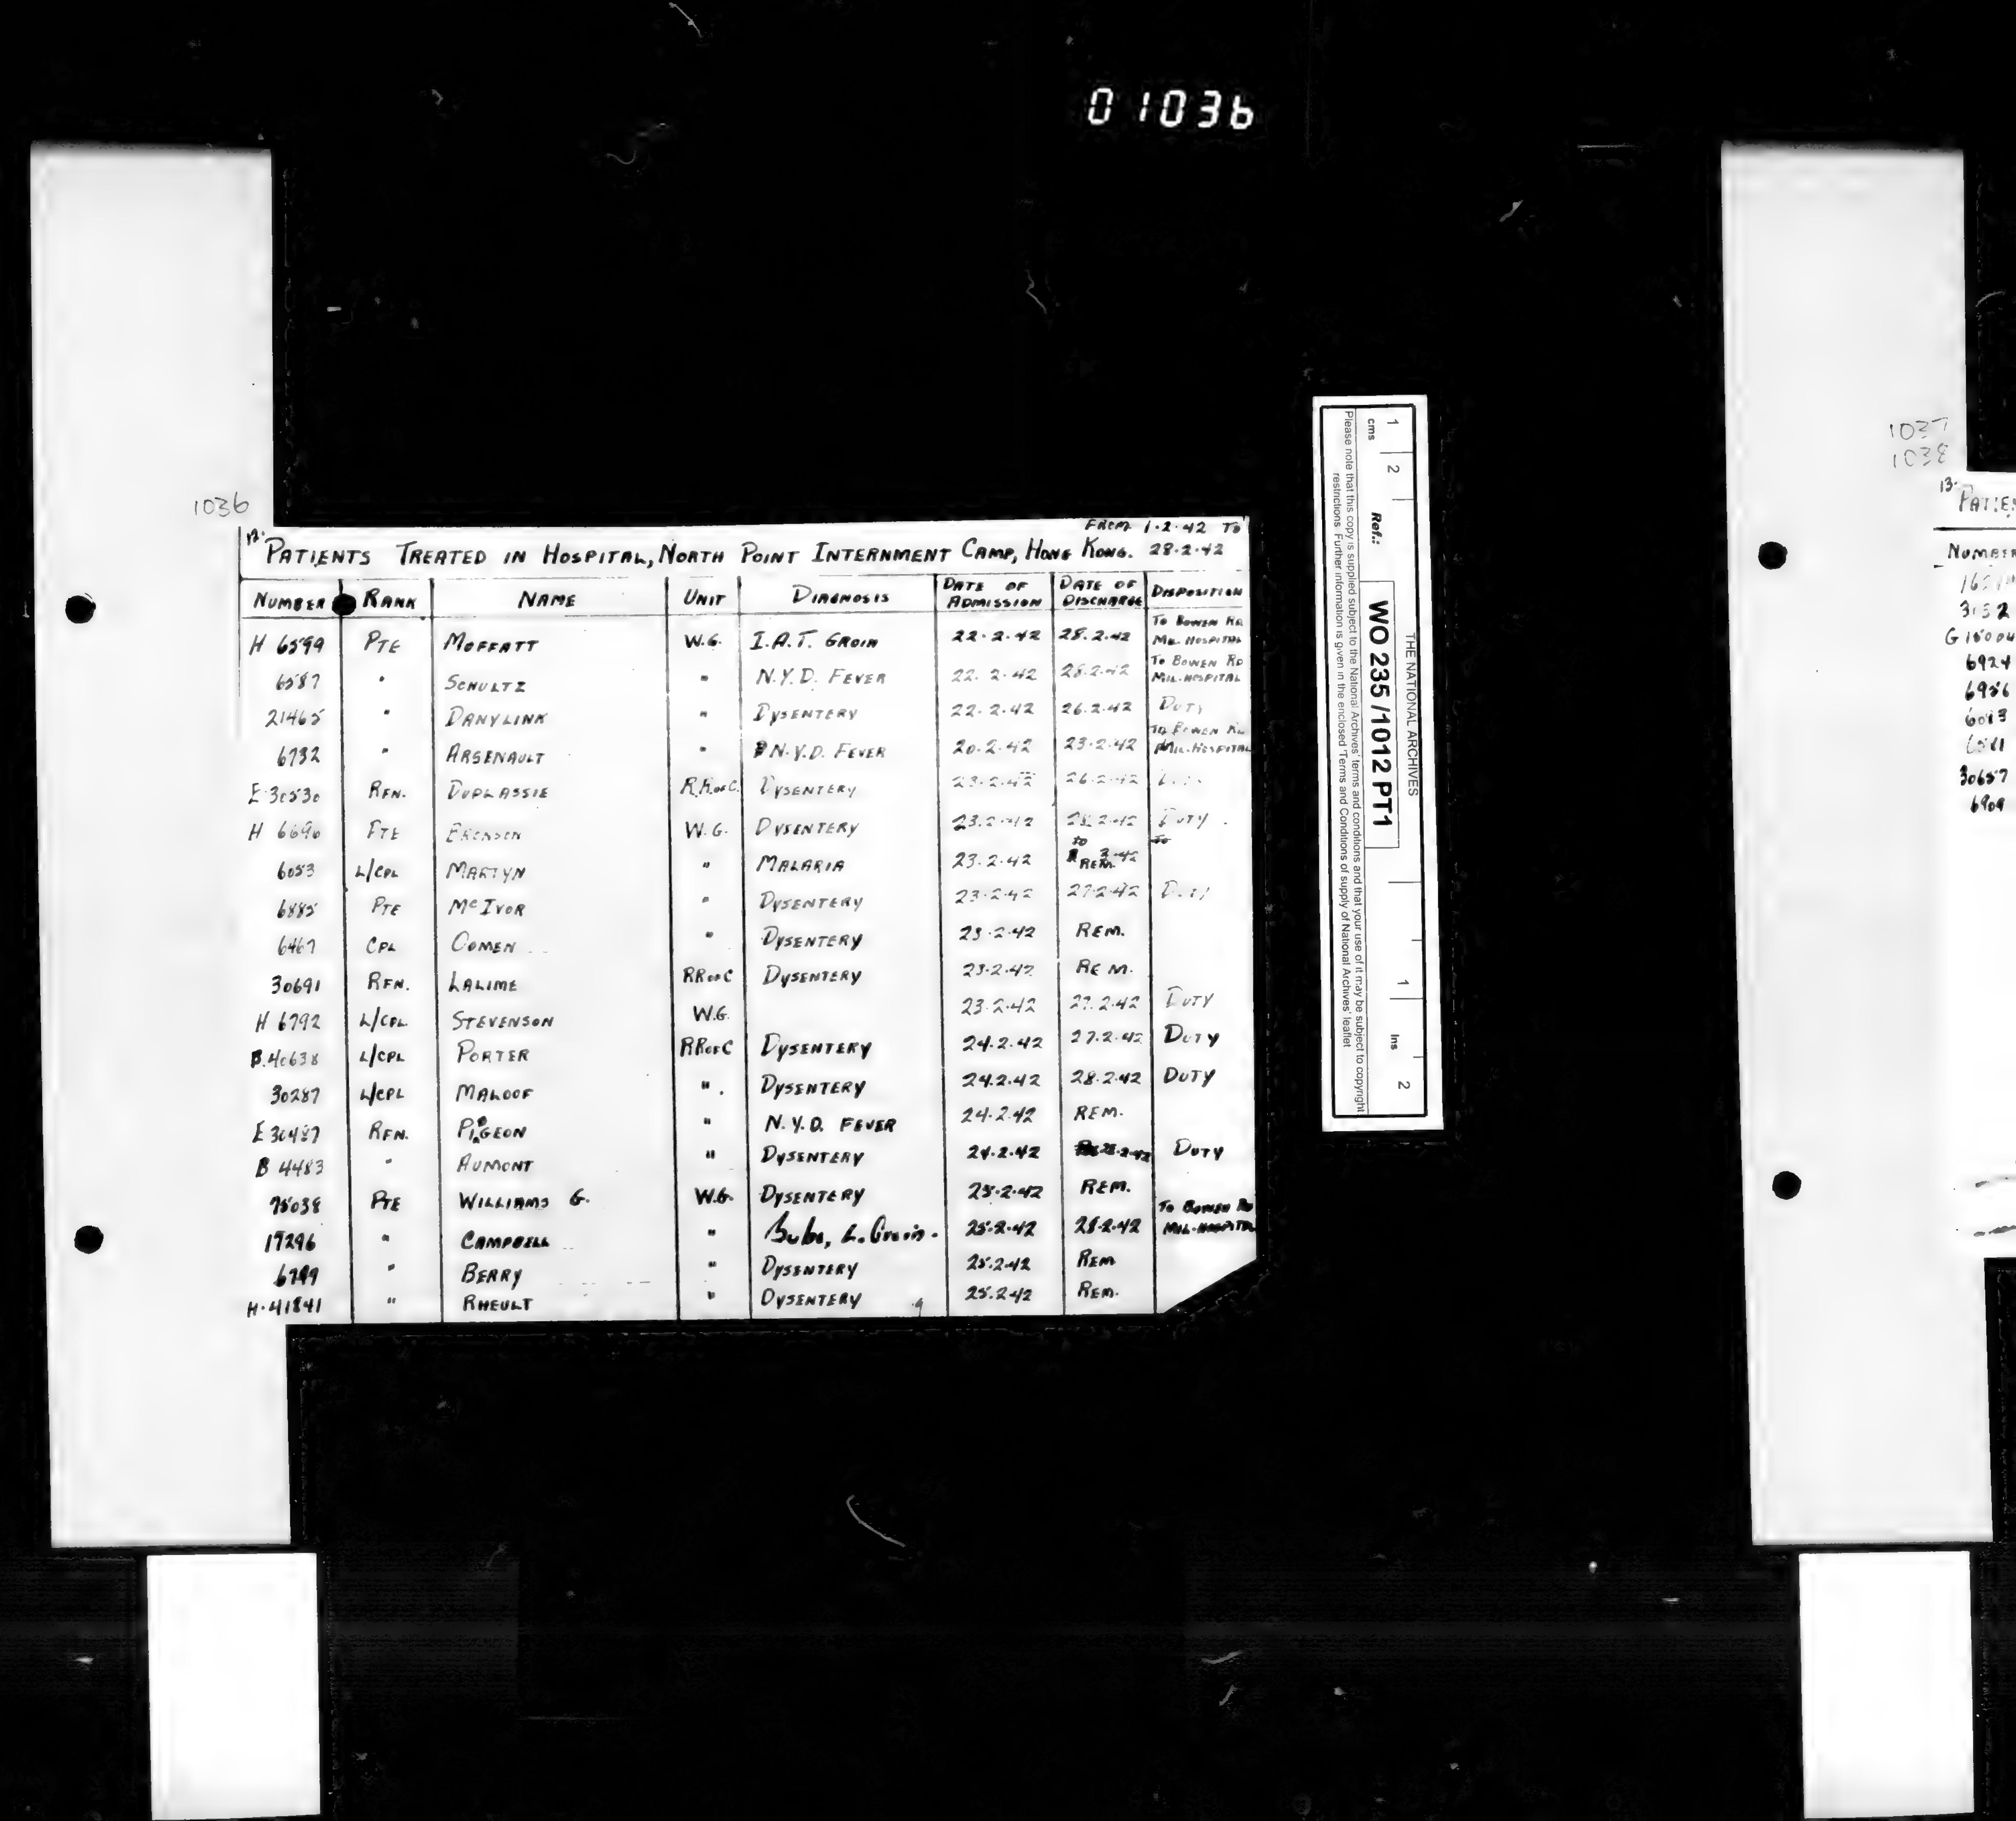 01036
1036
12.
FROM 1.2.42 TO
PATIENTS TREATED IN HOSPITAL, NORTH POINT INTERNMENT CAMP, HONG KONG. 28.2.42
NUMBER RANK NAME UNIT DIAGNOSIS DATE OF ADMISSION DATE OF DISCHARGE DISPOSITION
H 6599 PTE MOFFATT W.G. I.A.T. GROIN 22.2.42 28.2.42 TO BOWEN RD MIL. HOSPITAL
6587 " SCHULTZ " N.Y.D. FEVER 22.2.42 28.2.42 TO BOWEN RD MIL. HOSPITAL
21465 " DANYLINK " DYSENTERY 22.2.42 26.2.42 DUTY
6732 " ARSENAULT " N.Y.D. FEVER 20.2.42 23.2.42 TO BOWEN RD MIL. HOSPITAL
E 30530 RFN. DUPLASSIE R.R.of C. DYSENTERY 23.2.42 26.2.42
H 6696 PTE W.G. DYSENTERY 23.2.42 28.2.42 DUTY
6053 L/CPL MARTYN " MALARIA 23.2.42 REM.
6885 PTE McIVOR " DYSENTERY 23.2.42 27.2.42 DUTY
6467 CPL COMEN " DYSENTERY 23.2.42 REM.
30691 RFN. LALIME RR of C DYSENTERY 23.2.42 REM.
H 6792 L/CPL STEVENSON W.G. 23.2.42 27.2.42 DUTY
B.40638 L/CPL PORTER RR of C DYSENTERY 24.2.42 27.2.42 DUTY
30287 L/CPL MALOOF " DYSENTERY 24.2.42 28.2.42 DUTY
E 30487 RFN. PIGEON " N.Y.D. FEVER 24.2.42 REM.
B 4483 " AUMONT " DYSENTERY 24.2.42 28.2.42 DUTY
75038 PTE WILLIAMS G. W.G. DYSENTERY 25.2.42 REM.
17296 " CAMPBELL " Bubo, L. Groin. 25.2.42 28.2.42 TO BOWEN RD MIL. HOSPITAL
6799 " BERRY " DYSENTERY 25.2.42 REM
H.41841 " RHEULT " DYSENTERY 25.2.42 REM.
THE NATIONAL ARCHIVES
1 2 1 2
cms Ref.: WO 235 /1012 PT1 ins
Please note that this copy is supplied subject to the National Archives' terms and conditions and that your use of it may be subject to copyright
restrictions. Further information is given in the enclosed 'Terms and Conditions of supply of National Archives' leaflet
1037
1038
13.
PATIE
NUMBER
3152
6924
6956
6093
30657
6909